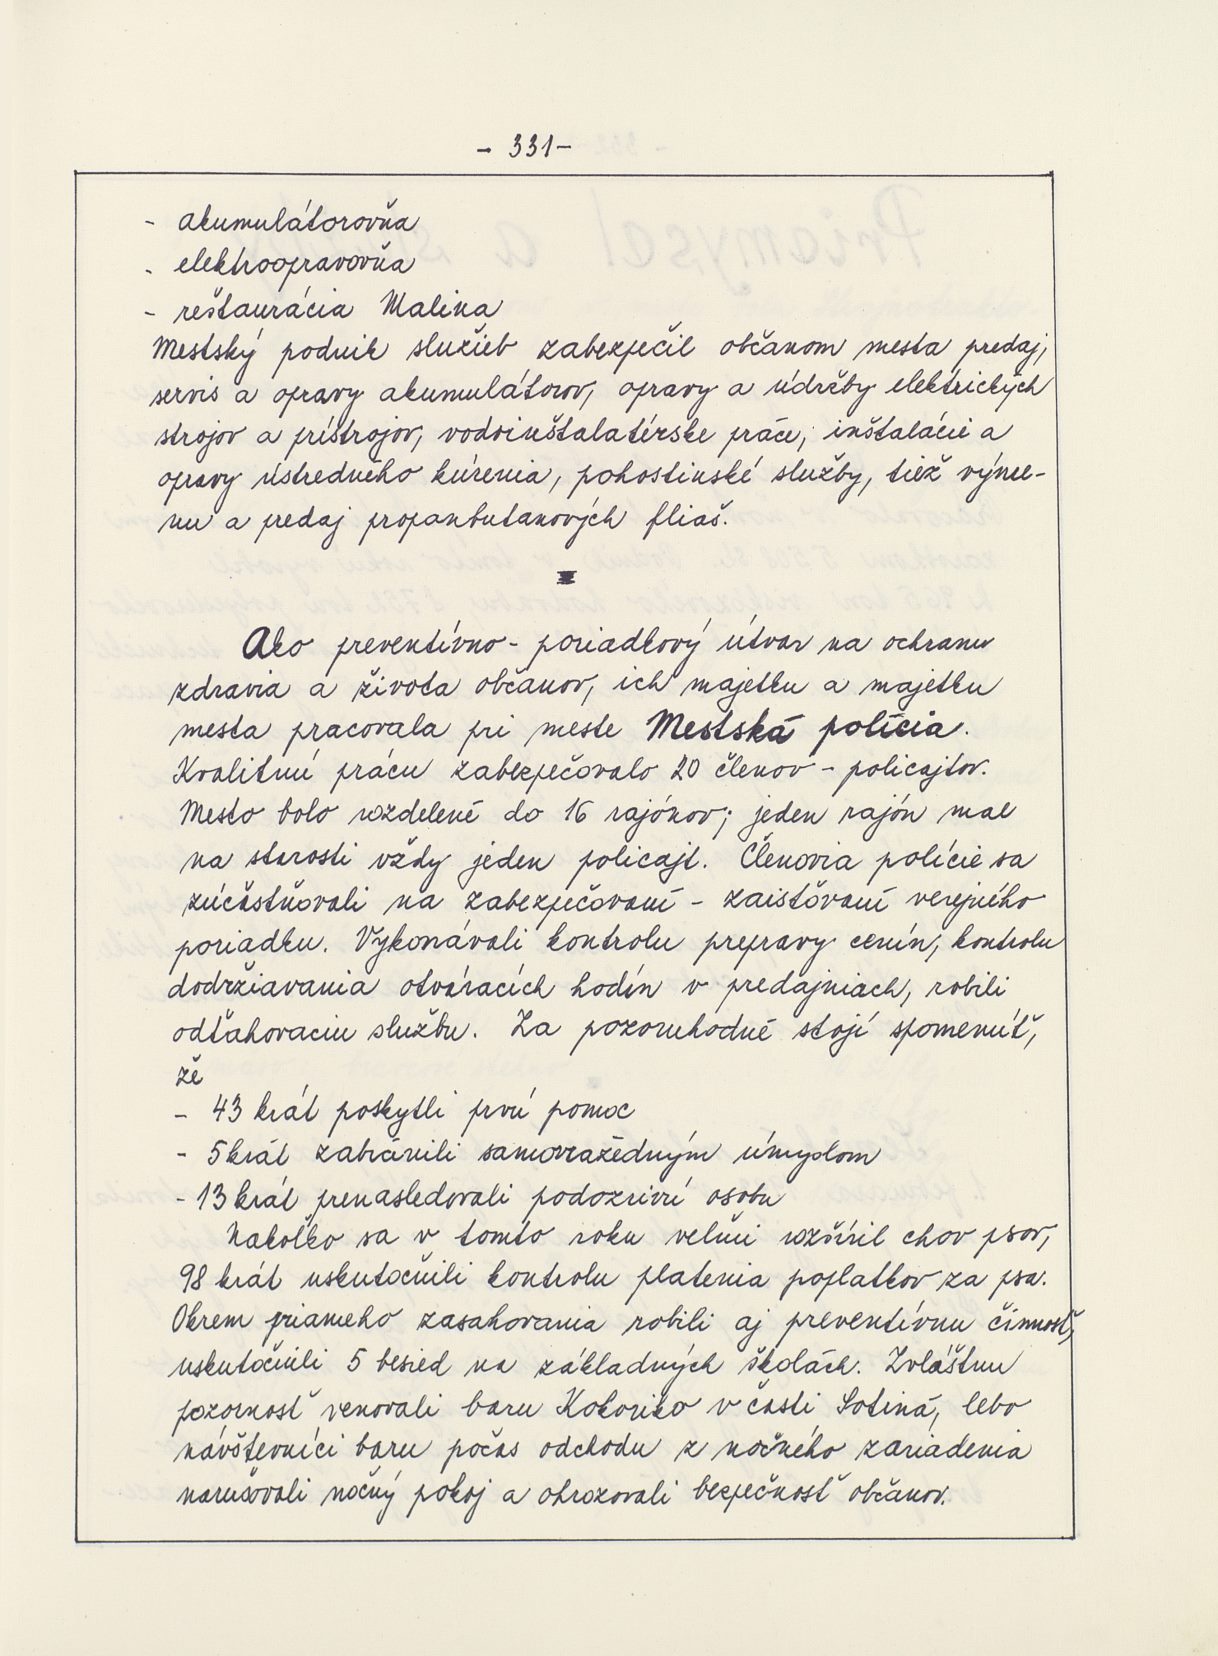 - 331 -
- akumulátorovňa
- elektroopravovňa
- reštaurácia Malina
Mestský podnik služieb zabezpečil občanom mesta predaj,
servis a opravy akumulátorov, opravy a údržby elektrických
strojov a prístrojov, vodoinštalatérske práce, inštalácie a
opravy ústredného kúrenia, pohostinské služby, tiež výme-
nu a predaj propanbutanových fliaš.
Ako preventívno - poriadkový útvar na ochranu
zdravia a života občanov, ich majetku a majetku
mesta pracovala pri meste Mestská polícia.
Kvalitnú prácu zabezpečovalo 20 členov - policajtov.
Mesto bolo rozdelené do 16 rajónov; jeden rajón mal
na starosti vždy jeden policajt. Členovia polície sa
zúčastňovali na zabezpečovaní - zaisťovaní verejného
poriadku. Vykonávali kontrolu prepravy cenín, kontrolu
dodržiavania otváracích hodín v predajniach, robili
odťahovaciu službu. Za pozoruhodné stojí spomenúť,
že
- 43 krát poskytli prvú pomoc
- 5 krát zabránili samovražedným úmyslom
- 13 krát prenasledovali podozrivú osobu
Nakoľko sa v tomto roku veľmi rozšíril chov psov,
98 krát uskutočnili kontrolu platenia poplatkov za psa.
Okrem priameho zasahovania robili aj preventívnu činnosť,
uskutočnili 5 besied na základných školách. Zvláštnu
pozornosť venovali baru Kokoriko v časti Sotiná, lebo
návštevníci baru počas odchodu z nočného zariadenia
narušovali nočný pokoj a ohrozovali bezpečnosť občanov.